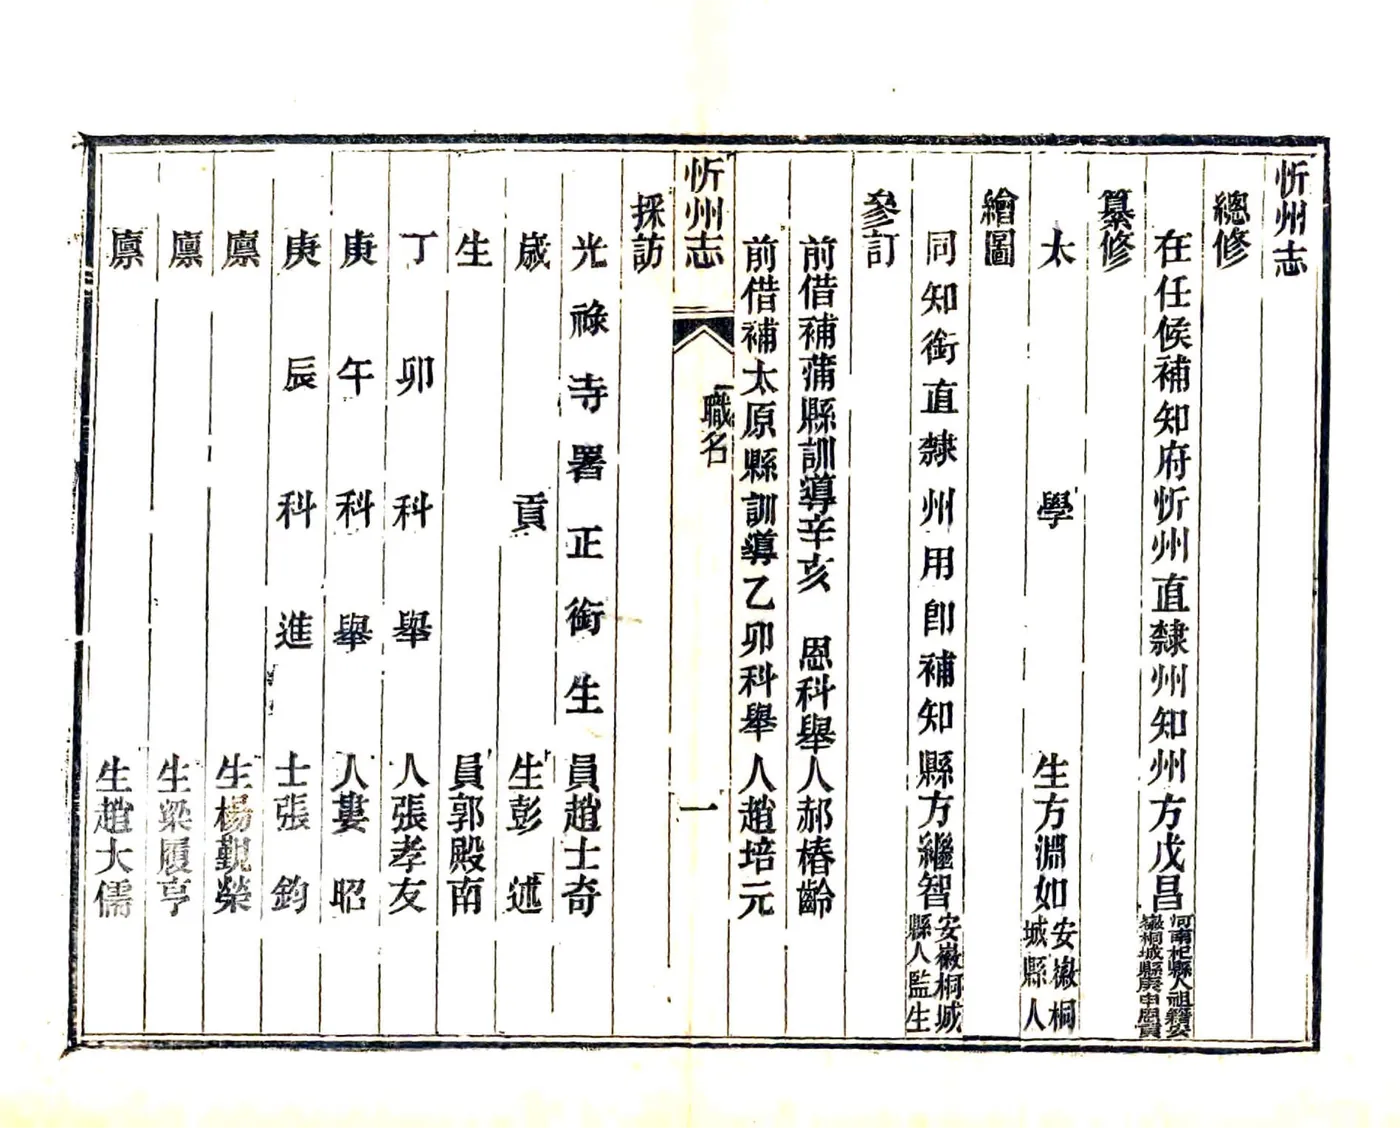 忻州志
總修
在任候補知府忻州直隸州知州方戊昌河南杞縣人祖籍安徽桐城縣庚申恩貢
纂修
太學生方淵如安徽桐城縣人
繪圖
同知銜直隸州用卽補知縣方繼智安徽桐城縣人監生
參訂
前借補蒲縣訓導辛亥 恩科舉人郝椿齡
前借補太原縣訓導乙卯科舉人趙培元
忻州志
職名
一
採訪
光祿寺署正銜生員趙士奇
歲貢生彭述
生員郭殿南
丁卯科舉人張孝友
庚午科舉人婁昭
庚辰科進士張鈞
廩生楊觐榮
廩生梁履亨
廩生趙大儒